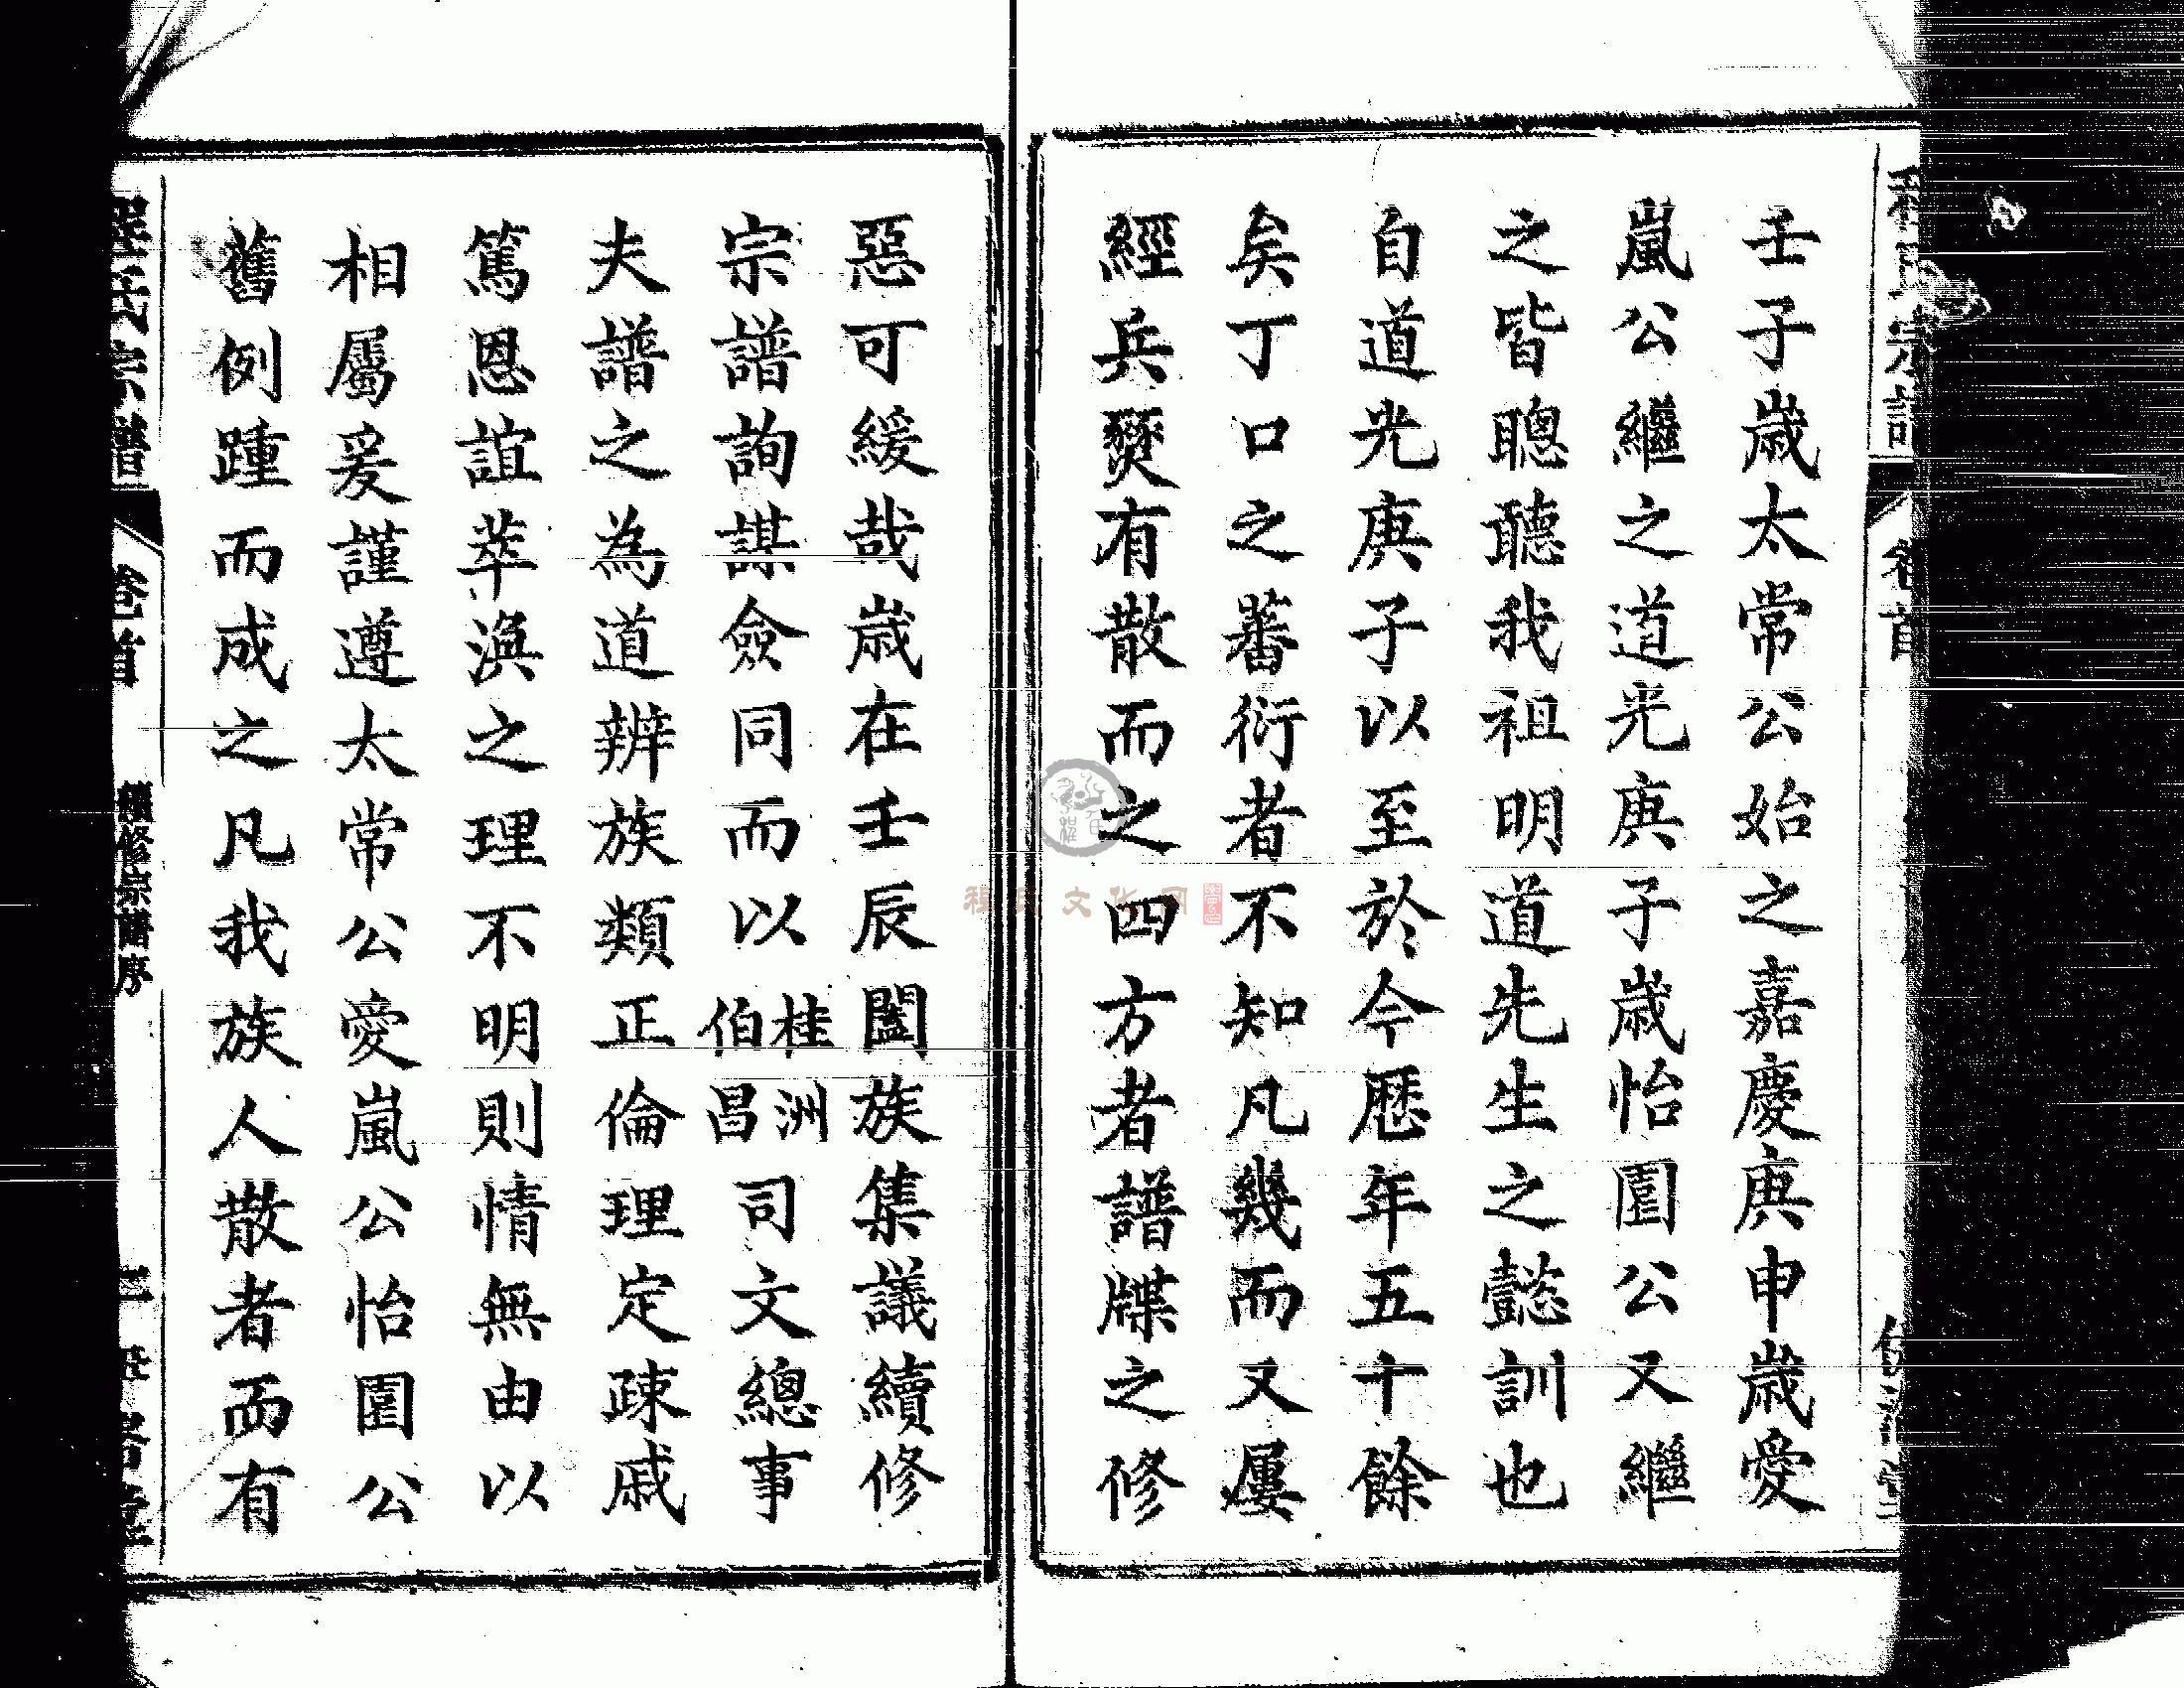 壬子歲太常公始之嘉慶庚申歲愛
嵐公繼之道光庚子歲怡園公又繼
之皆聰聽我祖明道先生之懿訓也
自道光庚子以至於今歷年五十餘
矣丁口之蕃衍者不知凡幾而又屢
經兵燹有散而之四方者譜牒之修
惡可緩哉歲在壬辰闔族集議續修
宗譜詢謀僉同而以桂洲伯昌司文總事
夫譜之為道辨族類正倫理定疎戚
篤恩誼萃渙之理不明則情無由以
相屬爰謹遵太常公愛嵐公怡園公
舊例踵而成之凡我族人散者而有
程氏宗譜
卷首
續修宗譜序
程氏文化网